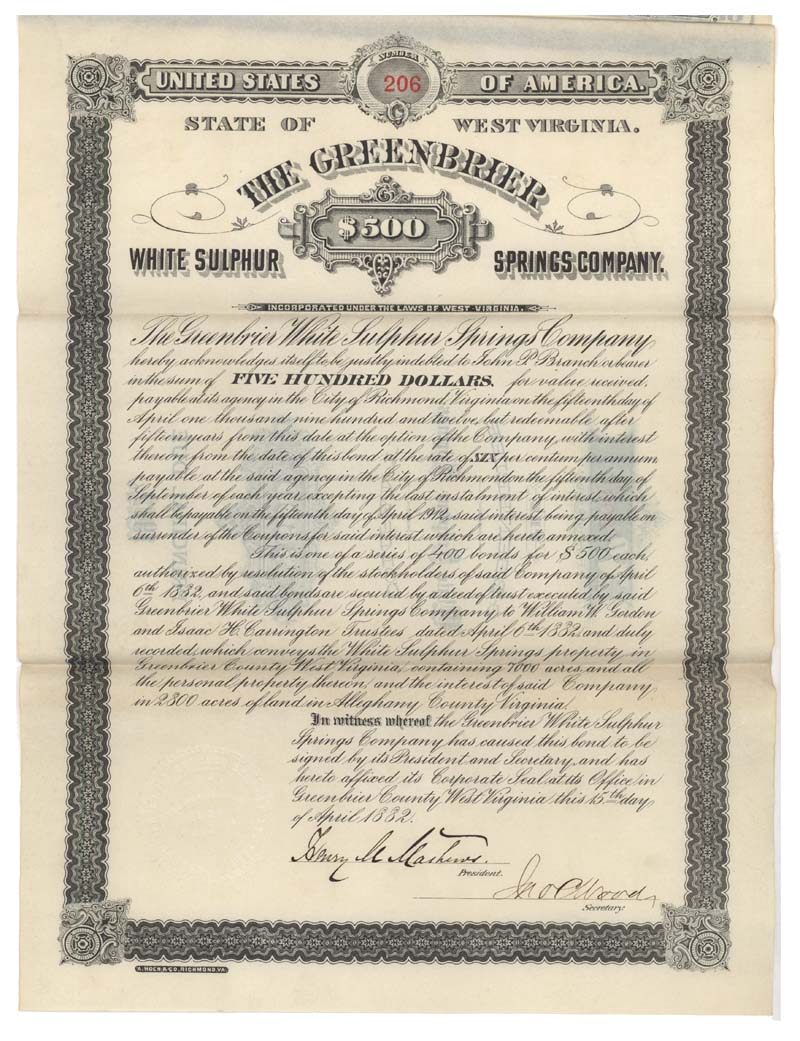 NUMBER
UNITED STATES 206 OF AMERICA.
STATE OF WEST VIRGINIA.
THE GREENBRIER
$500
WHITE SULPHUR SPRINGS COMPANY.
INCORPORATED UNDER THE LAWS OF WEST VIRGINIA.
The Greenbrier White Sulphur Springs Company
hereby acknowledges itself to be justly indebted to John P. Branch or bearer
in the sum of FIVE HUNDRED DOLLARS, for value received,
payable at its agency in the City of Richmond, Virginia on the fifteenth day of
April one thousand nine hundred and twelve, but redeemable after
fifteen years from this date at the option of the Company, with interest
thereon from the date of this bond at the rate of SIX per centum per annum,
payable at the said agency in the City of Richmond on the fifteenth day of
September of each year, excepting the last instalment of interest, which
shall be payable on the fifteenth day of April 1912, said interest being payable on
surrender of the Coupons for said interest which are hereto annexed.
This is one of a series of 400 bonds for $500 each,
authorized by resolution of the stockholders of said Company of April
6th 1882, and said bonds are secured by a deed of trust executed by said
Greenbrier White Sulphur Springs Company to William W. Gordon
and Isaac H. Carrington Trustees, dated April 6th 1882, and duly
recorded, which conveys the White Sulphur Springs property in
Greenbrier County West Virginia, containing 7000 acres, and all
the personal property thereon, and the interest of said Company
in 2800 acres of land in Alleghany County, Virginia.
In witness whereof the Greenbrier White Sulphur
Springs Company has caused this bond to be
signed by its President and Secretary, and has
hereto affixed its Corporate Seal at its Office in
Greenbrier County, West Virginia, this 15th day
of April 1882.
Henry M Mathews.
President.
Jno C Wood,
Secretary.
A. HOEN & CO, RICHMOND, VA